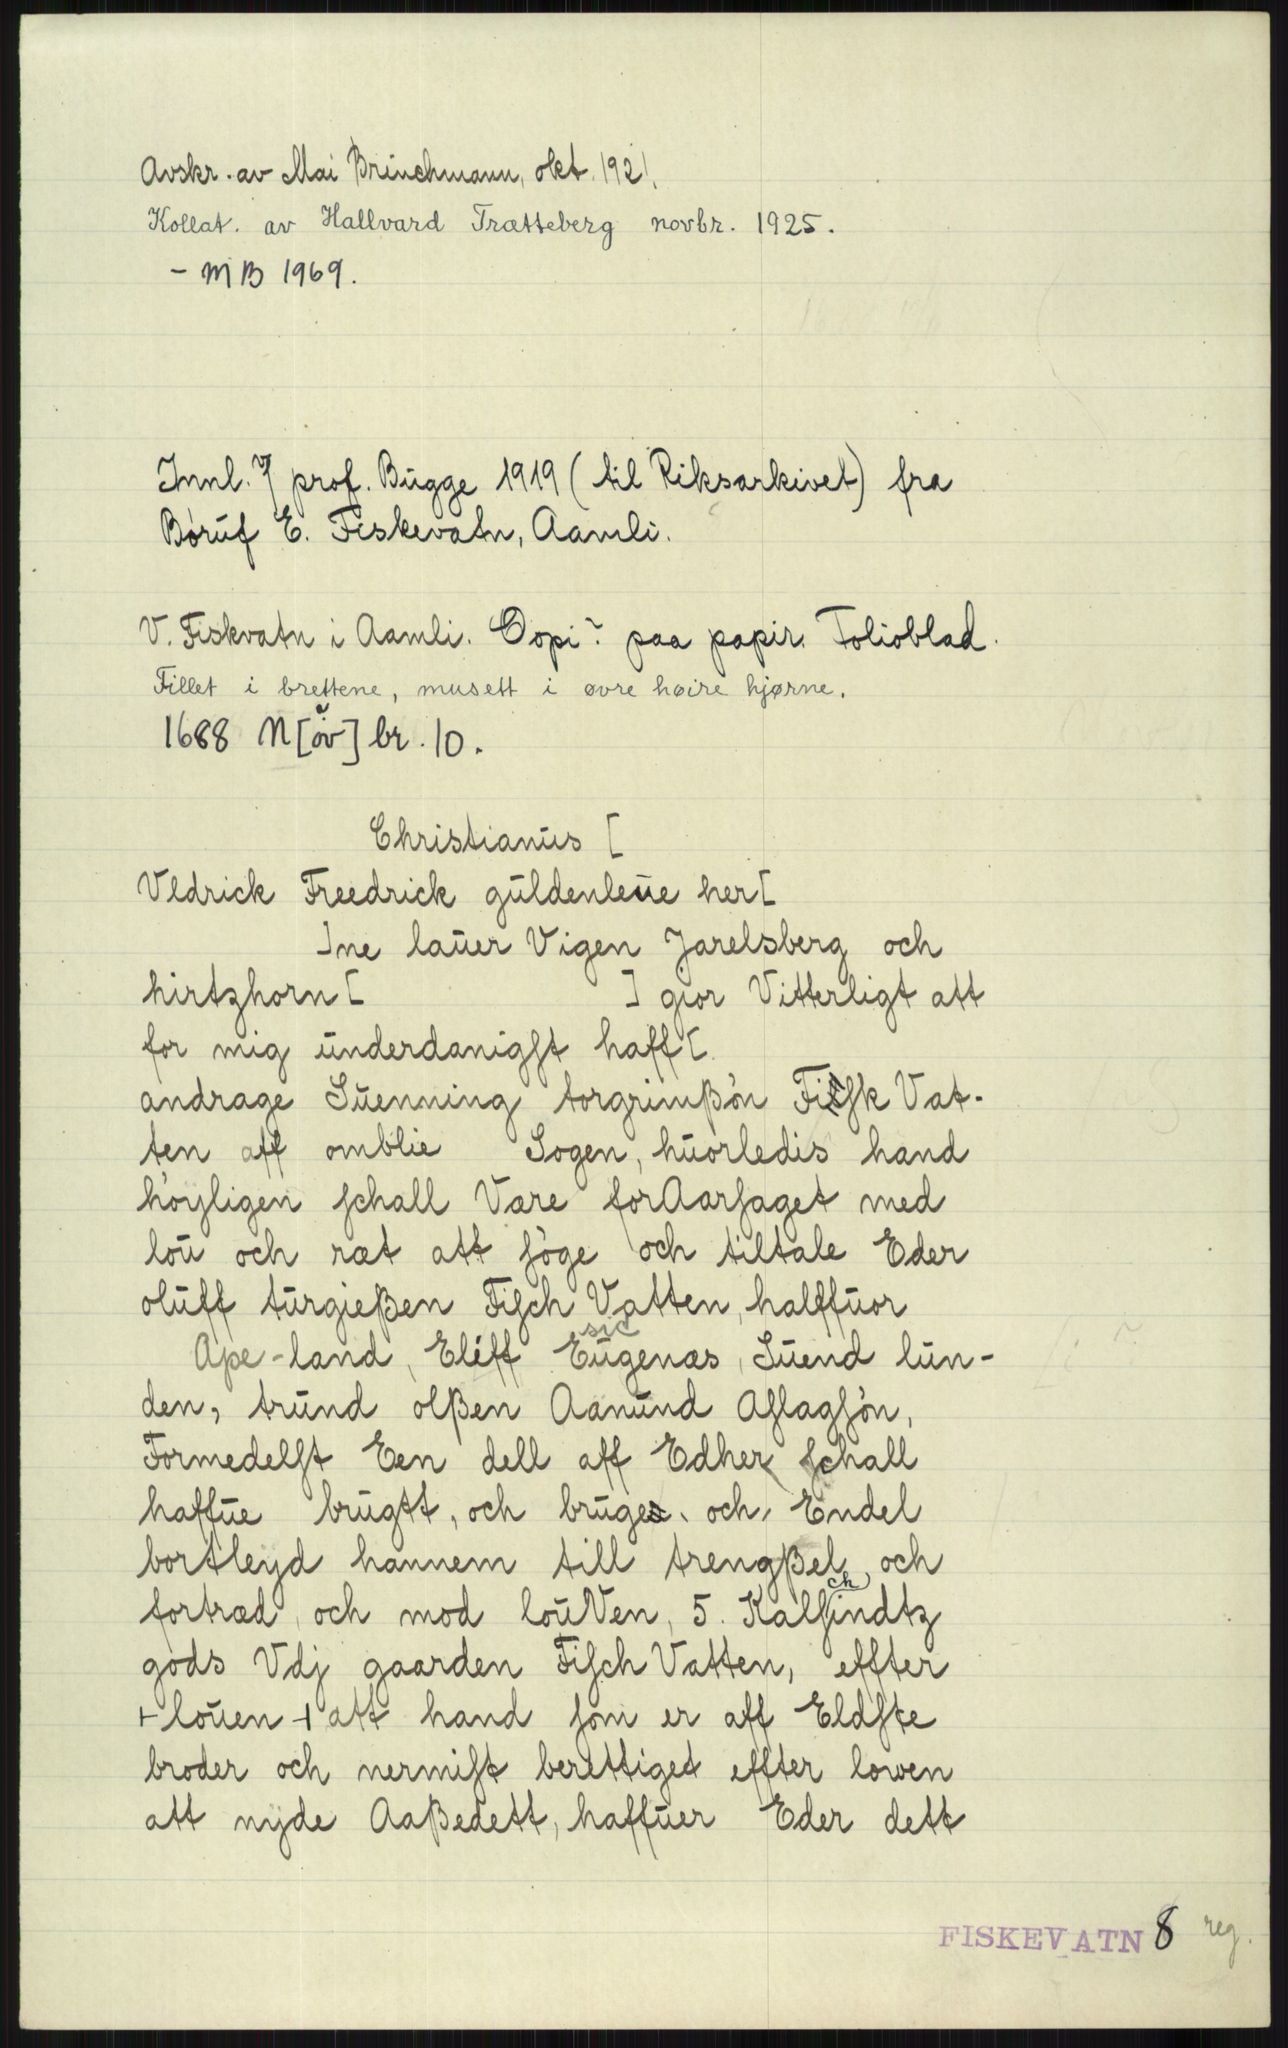 Avskr. av Mai Brinchmann, okt. 1921.
Kollat. av Hallvard Trætteberg novbr. 1925.
- MB 1969.
Innl. v/ prof. Bugge 1919 (til Riksarkivet) fra
Børuf E. Fiskevatn, Aamli.
V. Fiskvatn i Aamli. Copi? paa papir. Folioblad.
Fillet i brettene, musett i øvre høire hjørne.
1688 N[ov] br. 10.
Christianus [
Vldrick Freedrick güldenleue her[
]ne laüer Vigen Jarelsberg och
hirtzhorn[ ] giør Vitterligt att
for mig ünderdanigſt haff[
andrage Süenning torgrimßön Fiſk Vat-
ten aff omblie Sogen, hüorledis hand
höyligen ſchall Være forAarſaget med
loü och ræt att ſöge och tiltale Eder
olüff türgießen Fiſch Vatten, halffüor
Ape-land, Eliff Eügenæs, Süend lün-
sic
den, tründ olßen Aanünd Aſlagſön,
Formedelſt Een dell aff Edher ſchall
haffüe brügtt, och brüges och Endel
bortleyd hannem till trengßel och
fortræd, och mod loüVen, 5. Kalfſkindtz
ch
gods Vdj gaarden Fiſch Vatten, effter
+ loüen + att hand ſom er aff Eldſte
broder och nermiſt berettiget effter lowen
att nyde Aaßedett, haffüer Eder dett
FISKEVATN 8 reg.